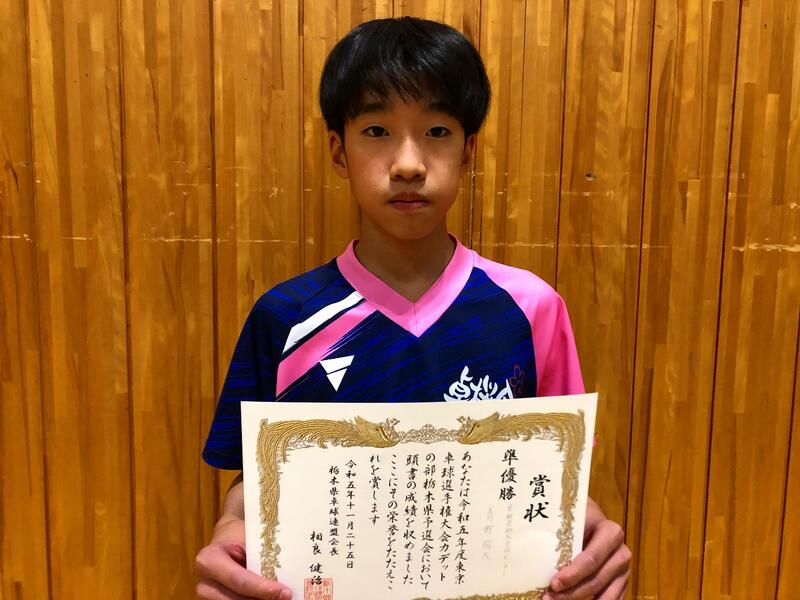 賞状
準優勝
あなたは令和五年度東京
卓球選手権大会カデット
の部栃木県予選会において
頭書の成績を収めました
ここにその栄誉をたたえこ
れを賞します
令和五年十一月二十五日
栃木県卓球連盟会長
相良 健治